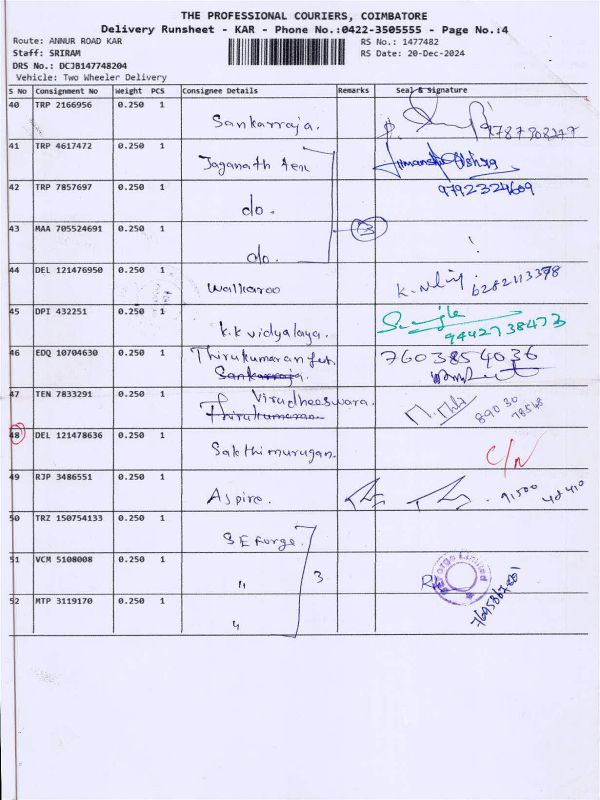 THE PROFESSIONAL COURIERS, COIMBATORE
Delivery Runsheet - KAR - Phone No.:0422-3505555 - Page No.:4
Route: ANNUR ROAD KAR
RS No.: 1477482
Staff: SRIRAM
RS Date: 20-Dec-2024
DRS No.: DCJB147748204
Vehicle: Two Wheeler Delivery
S No Consignment No Weight PCS Consignee Details Remarks Seal & Signature
40 TRP 2166956 0.250 1 Sankarraja.
41 TRP 4617472 0.250 1 Jaganath ten
42 TRP 7857697 0.250 1 do. 9792324609
43 MAA 705524691 0.250 1 do. 3
44 DEL 121476950 0.250 1 Walkaroo 6282113378
45 DPI 432251 0.250 1 K.K vidyalaya. 9442738473
46 EDQ 10704630 0.250 1 Thirukumaran 7603854036
Sankarraja.
47 TEN 7833291 0.250 1 Virudheeswara. 890 30
Thirukumaran
48 DEL 121478636 0.250 1 Sakthimurugan. C/N
49 RJP 3486551 0.250 1 Aspiro. 91500
50 TRZ 150754133 0.250 1 SE Forge.
51 VCM 5108008 0.250 1 " 3
52 MTP 3119170 0.250 1 "